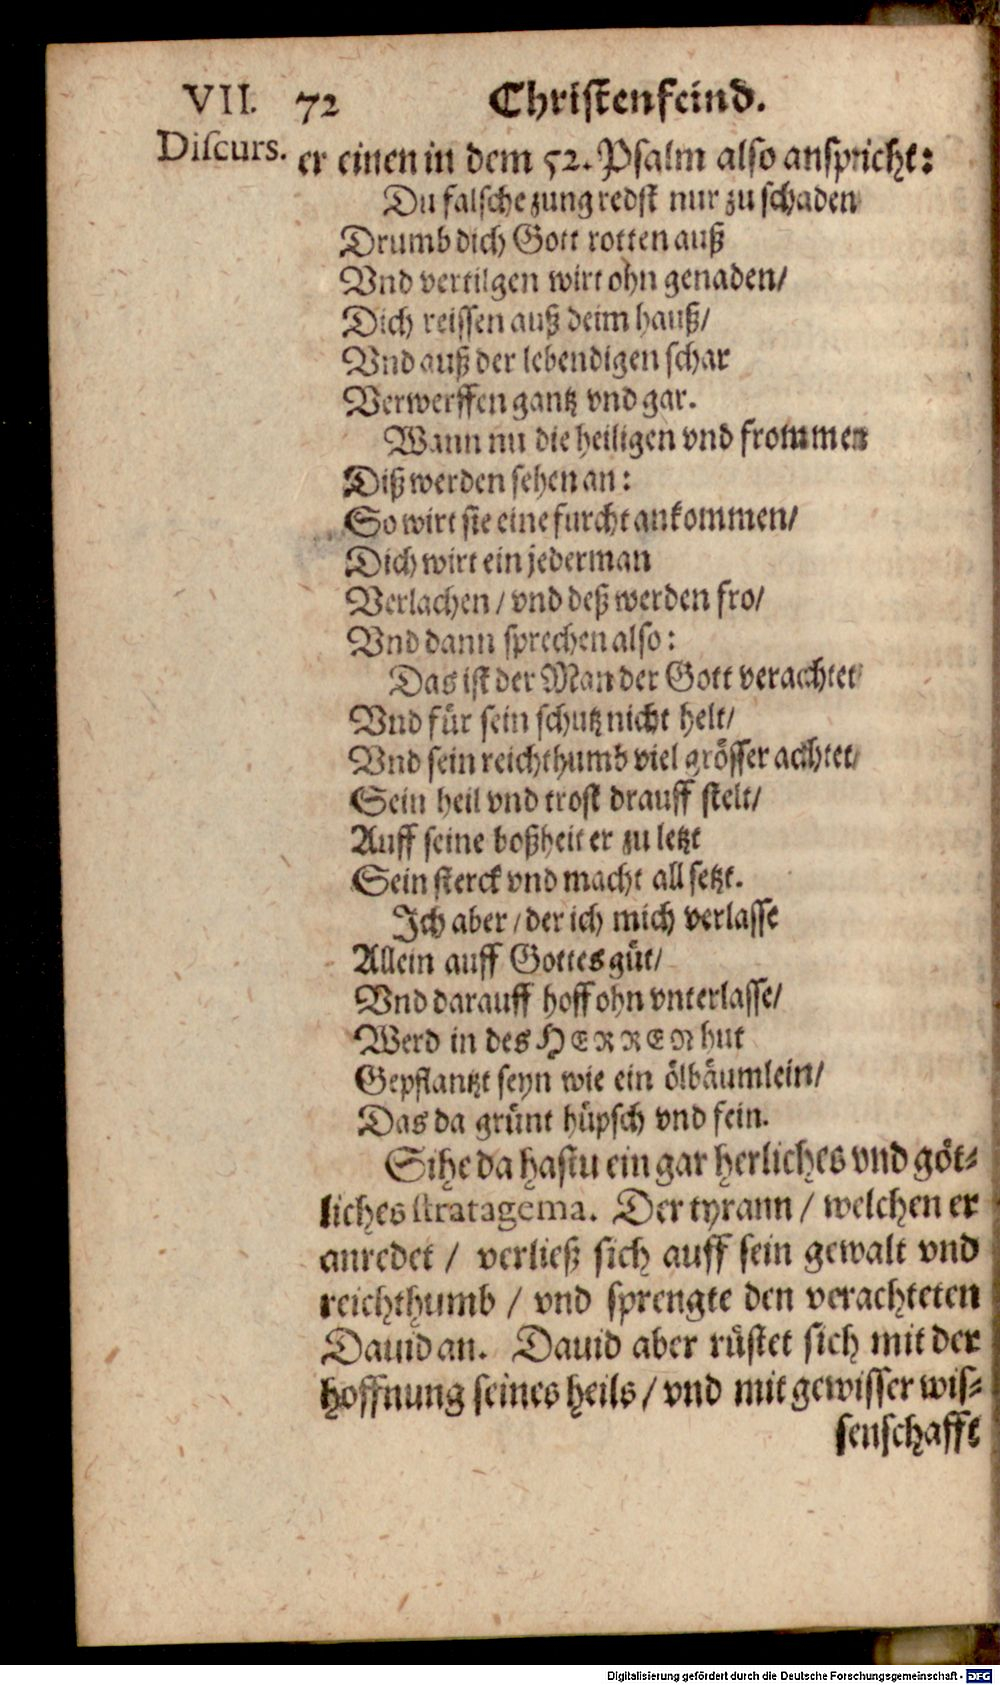 VII. 72 Christenfeind.
Discurs. er einen in dem 52. Psalm also anspricht:
Du falsche zung redst nur zu schaden
Drumb dich Gott rotten auß
Vnd vertilgen wirt ohn genaden/
Dich reissen auß deim hauß/
Vnd auß der lebendigen schar
Verwerffen gantz vnd gar.
Wann nu die heiligen vnd frommen
Diß werden sehen an:
So wirt sie eine furcht ankommen/
Dich wirt ein jederman
Verlachen / vnd deß werden fro/
Vnd dann sprechen also:
Das ist der Man der Gott verachtet
Vnd für sein schutz nicht helt/
Vnd sein reichthumb viel grösser achtet/
Sein heil vnd trost drauff stelt/
Auff seine boßheit er zu letzt
Sein sterck vnd macht all setzt.
Ich aber / der ich mich verlasse
Allein auff Gottes güt/
Vnd darauff hoff ohn vnterlasse/
Werd in des HERREN hut
Gepflantzt seyn wie ein ölbäumlein/
Das da grünt hüpsch vnd fein.
Sihe da hastu ein gar herliches vnd göt-
liches stratagema. Der tyrann / welchen er
anredet / verließ sich auff sein gewalt vnd
reichthumb / vnd sprengte den verachteten
Dauid an. Dauid aber rüstet sich mit der
hoffnung seines heils / vnd mit gewisser wis-
senschafft
Digitalisierung gefördert durch die Deutsche Forschungsgemeinschaft - DFG